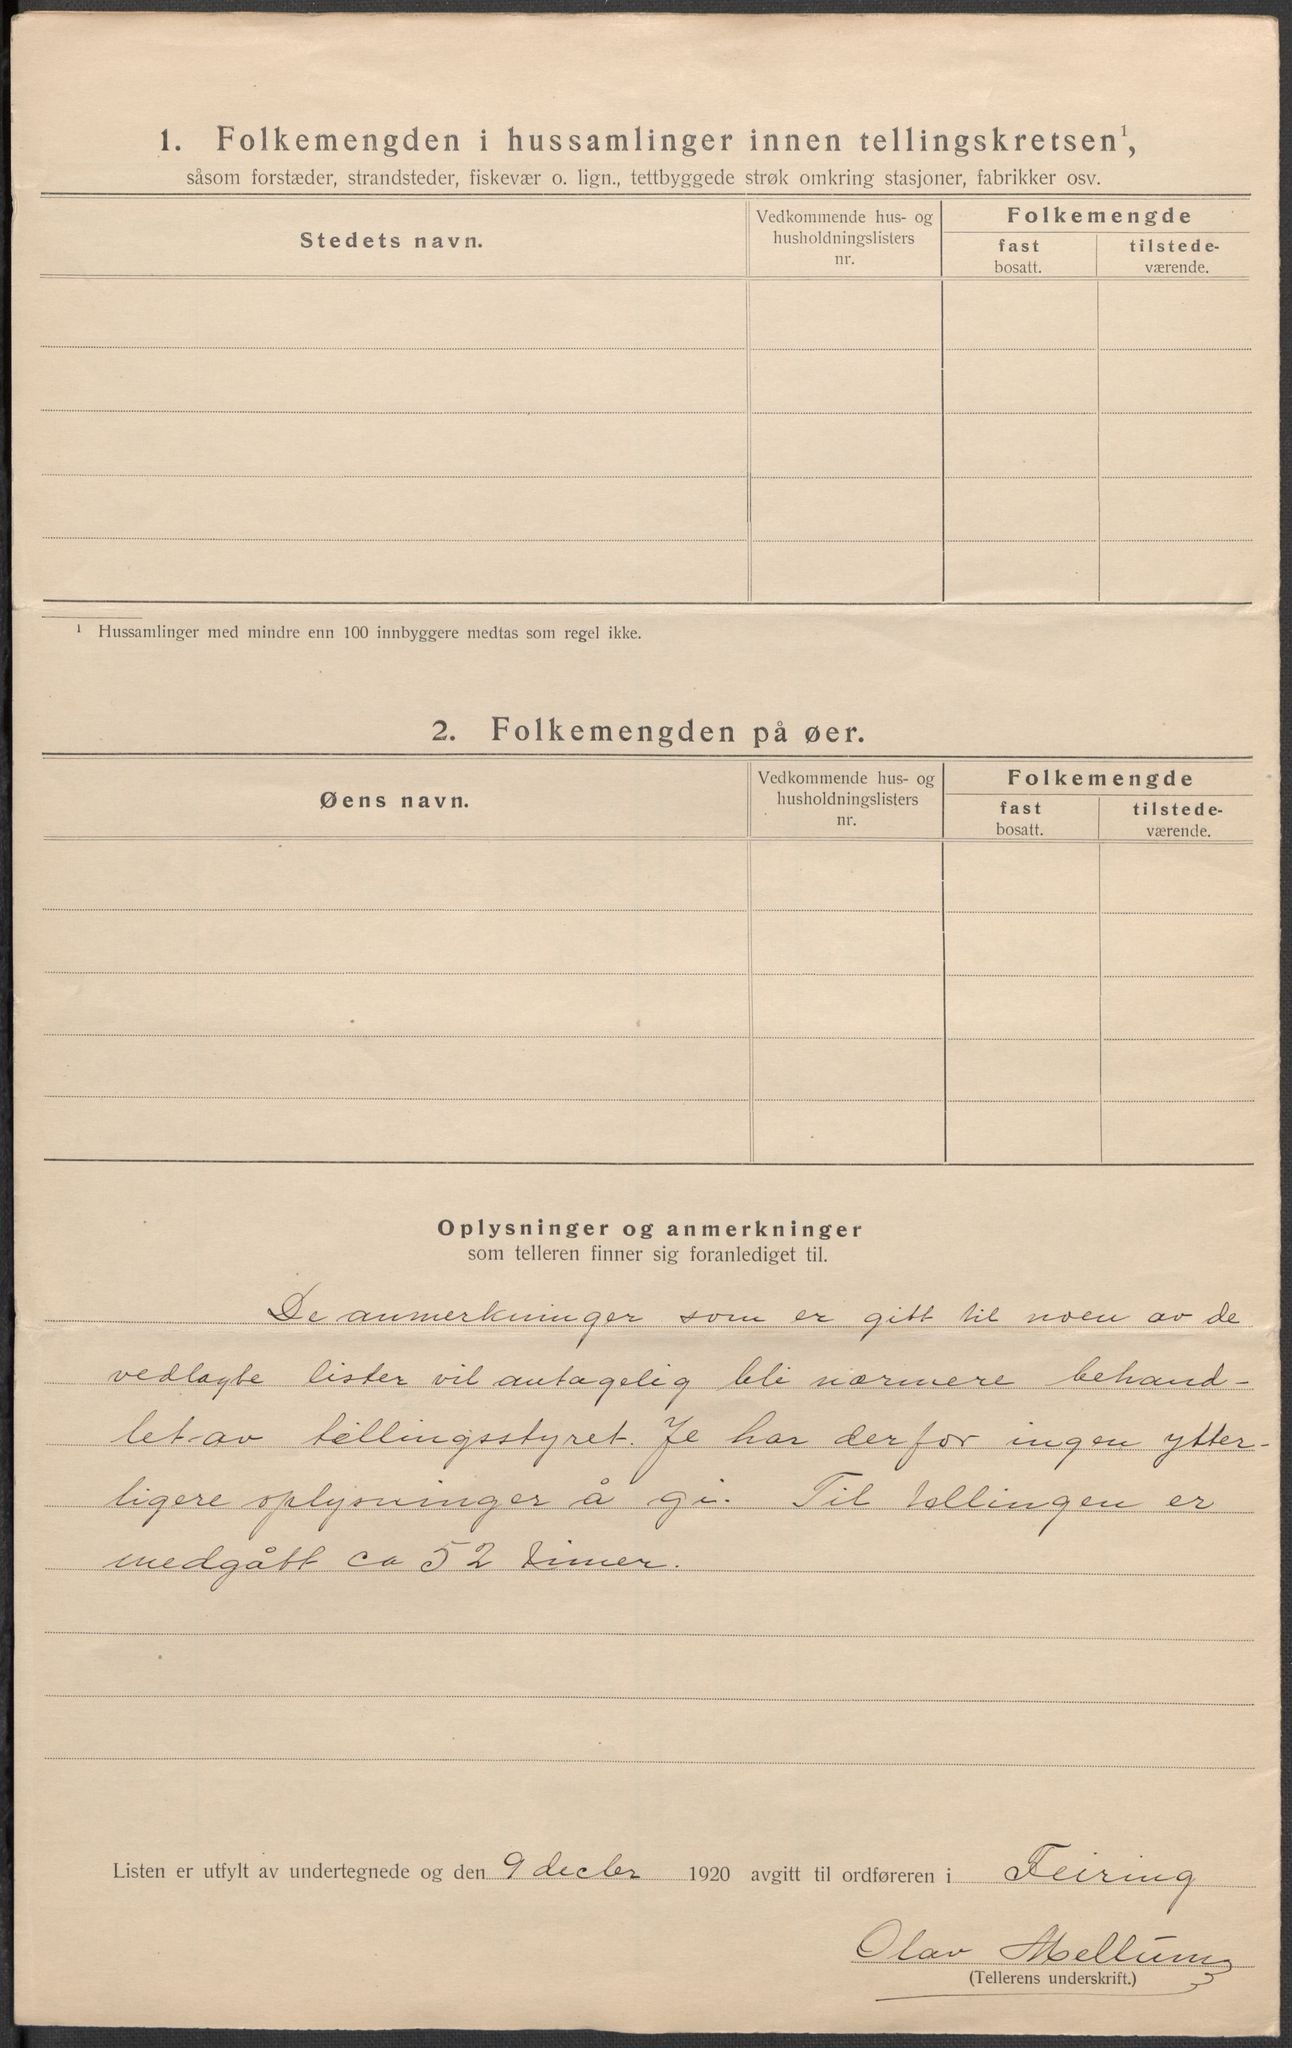 1. Folkemengden i hussamlinger innen tellingskretsen¹,
såsom forstæder, strandsteder, fiskevær o. lign., tettbyggede strøk omkring stasjoner, fabrikker osv.
Stedets navn.
Vedkommende hus- og
husholdningslisters
nr.
Folkemengde
fast
bosatt.
tilstede-
værende.
¹ Hussamlinger med mindre enn 100 innbyggere medtas som regel ikke.
2. Folkemengden på øer.
Øens navn.
Vedkommende hus- og
husholdningslisters
nr.
Folkemengde
fast
bosatt.
tilstede-
værende.
Oplysninger og anmerkninger
som telleren finner sig foranlediget til.
De anmerkninger som er gitt til noen av de
vedlagte lister vil antagelig bli nærmere behand-
let av tellingsstyret. Je har derfor ingen ytter-
ligere oplysninger å gi. Til tellingen er
medgått ca 52 timer.
Listen er utfylt av undertegnede og den 9 decbr 1920 avgitt til ordføreren i Feiring
Olav Mellum
(Tellerens underskrift.)